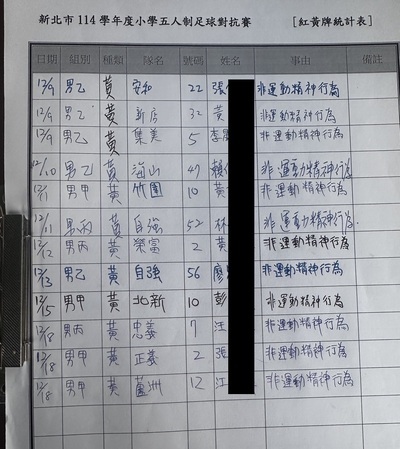 新北市 114 學年度小學五人制足球對抗賽 [紅黃牌統計表]
日期 組別 種類 隊名 號碼 姓名 事由 備註
12/9 男乙 黃 安和 22 張 非運動精神行為
12/9 男乙 黃 新店 32 黃 非運動精神行為
12/9 男乙 黃 集美 5 李 非運動精神行為
12/10 男乙 黃 海山 47 賴 非運動精神行為
12/11 男甲 黃 竹圍 10 黃 非運動精神行為
12/11 男丙 黃 自強 52 林 非運動精神行為
12/12 男丙 黃 榮富 2 黃 非運動精神行為
12/13 男乙 黃 自強 56 廖 非運動精神行為
12/15 男甲 黃 北新 10 彭 非運動精神行為
12/18 男丙 黃 忠義 7 汪 非運動精神行為
12/18 男甲 黃 正義 2 張 非運動精神行為
12/18 男甲 黃 蘆洲 12 江 非運動精神行為